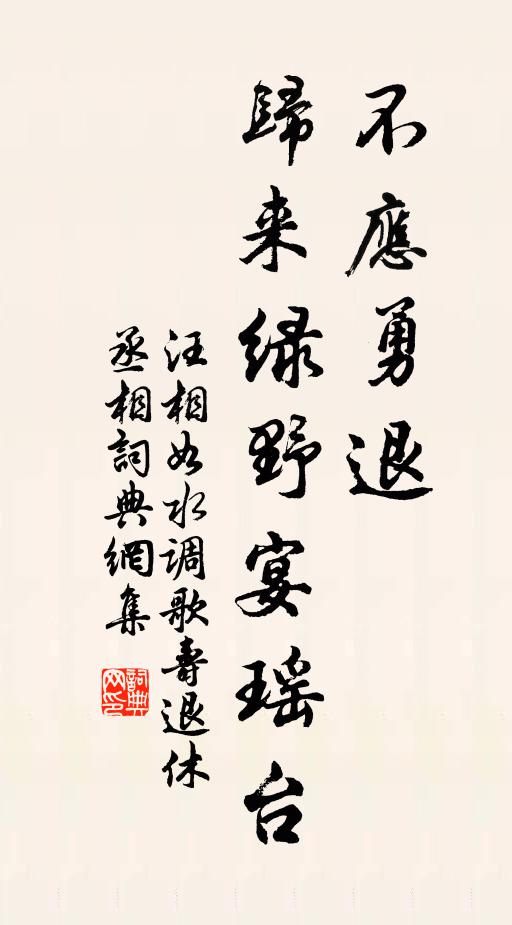 不應勇退
歸来绿野宴瑶台
汪相如水调歌壽退休
丞相詞典網集
詞典
网印